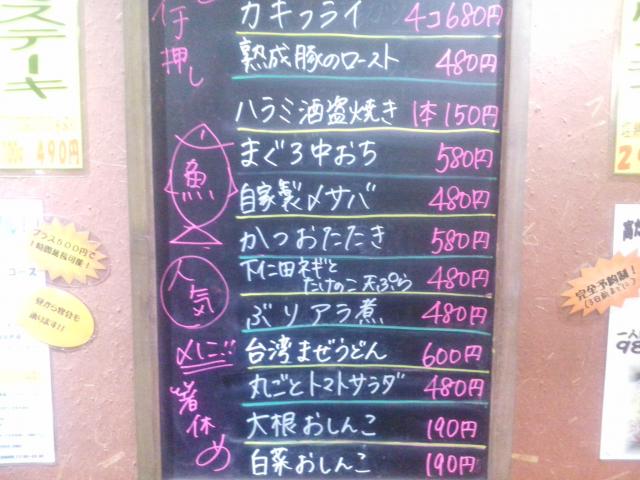 カキフライ 4コ680円
熟成豚のロースト 480円
ハラミ酒盗焼き 1本150円
まぐろ中おち 580円
自家製〆サバ 480円
かつおたたき 580円
下仁田ネギと
たけのこ天ぷら 480円
ぶりアラ煮 480円
台湾まぜうどん 600円
丸ごとトマトサラダ 480円
大根おしんこ 190円
白菜おしんこ 190円
押し
魚
人気
〆に
箸休め
ステーキ
490円
プラス500円で
1時間延長可能!
昼から宴会も
承ります!!
コース
完全予約制!
(3日前までに)